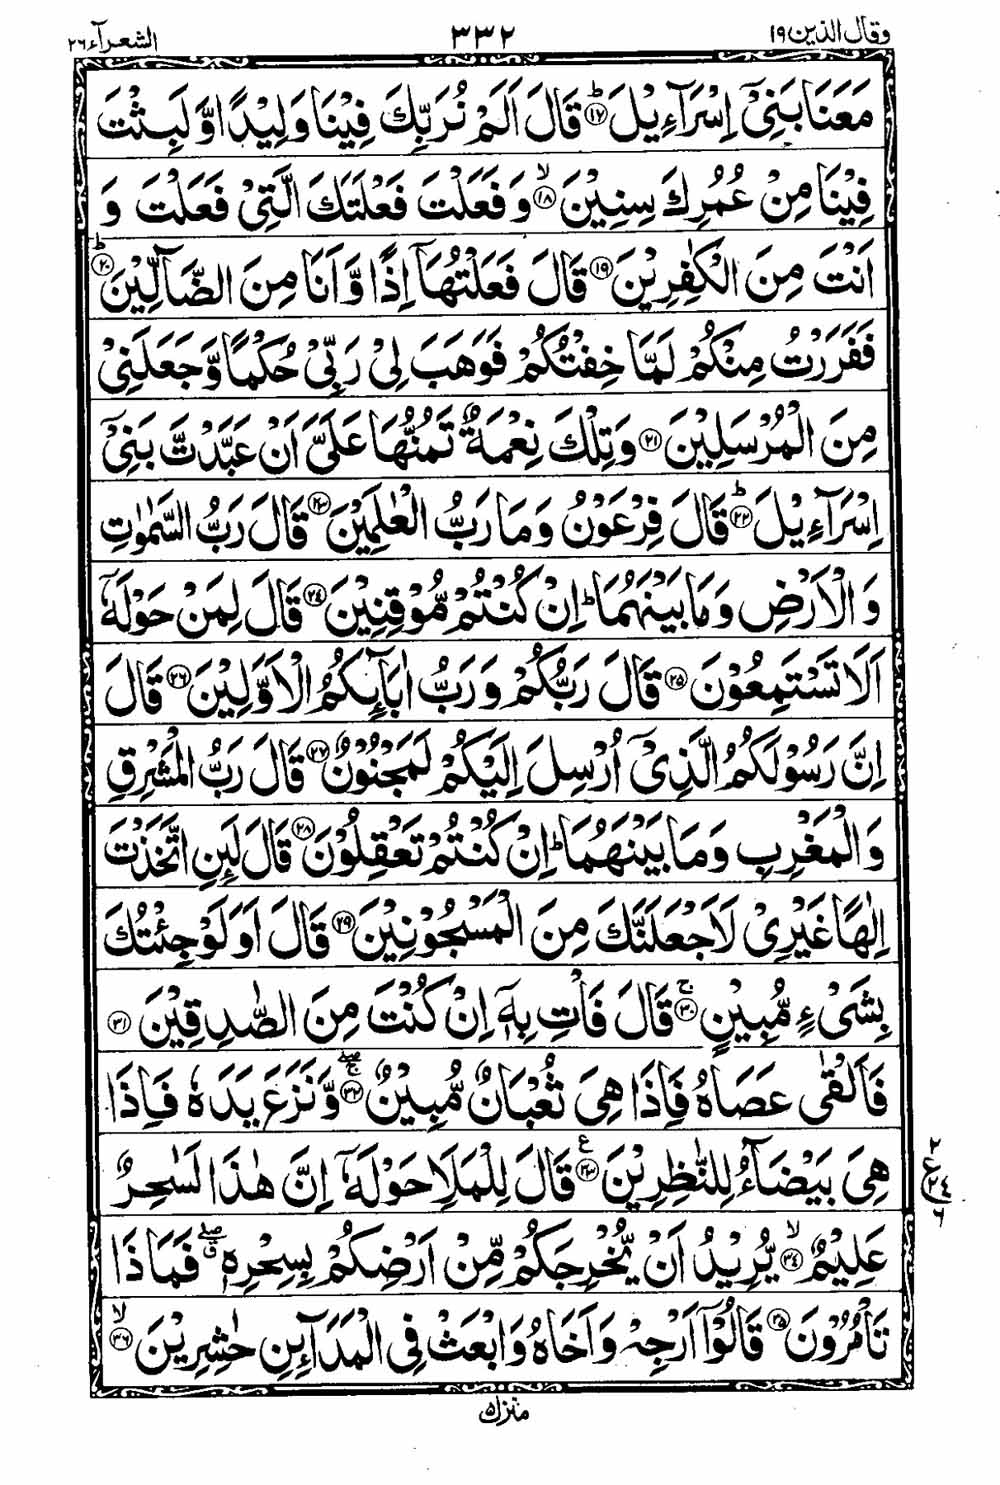 وقال الذین ۱۹
۳۳۲
الشعرآء ۲۶
مَعَنَا بَنِیْۤ اِسْرَآءِیْلَ ؕ۱۷ قَالَ اَلَمْ نُرَبِّكَ فِیْنَا وَلِیْدًا وَّلَبِثْتَ
فِیْنَا مِنْ عُمُرِكَ سِنِیْنَ ۙ۱۸ وَفَعَلْتَ فَعْلَتَكَ الَّتِیْ فَعَلْتَ وَ
اَنْتَ مِنَ الْكٰفِرِیْنَ ۱۹ قَالَ فَعَلْتُهَاۤ اِذًا وَّاَنَا مِنَ الضَّآلِّیْنَ ؕ۲۰
فَفَرَرْتُ مِنْكُمْ لَمَّا خِفْتُكُمْ فَوَهَبَ لِیْ رَبِّیْ حُكْمًا وَّجَعَلَنِیْ
مِنَ الْمُرْسَلِیْنَ ۲۱ وَتِلْكَ نِعْمَةٌ تَمُنُّهَا عَلَیَّ اَنْ عَبَّدْتَّ بَنِیْۤ
اِسْرَآءِیْلَ ؕ۲۲ قَالَ فِرْعَوْنُ وَمَا رَبُّ الْعٰلَمِیْنَ ۲۳ قَالَ رَبُّ السَّمٰوٰتِ
وَالْاَرْضِ وَمَا بَیْنَهُمَا ؕ اِنْ كُنْتُمْ مُّوْقِنِیْنَ ۲۴ قَالَ لِمَنْ حَوْلَهٗۤ
اَلَا تَسْتَمِعُوْنَ ۲۵ قَالَ رَبُّكُمْ وَرَبُّ اٰبَآئِكُمُ الْاَوَّلِیْنَ ۲۶ قَالَ
اِنَّ رَسُوْلَكُمُ الَّذِیْۤ اُرْسِلَ اِلَیْكُمْ لَمَجْنُوْنٌ ۲۷ قَالَ رَبُّ الْمَشْرِقِ
وَالْمَغْرِبِ وَمَا بَیْنَهُمَا ؕ اِنْ كُنْتُمْ تَعْقِلُوْنَ ۲۸ قَالَ لَئِنِ اتَّخَذْتَ
اِلٰهًا غَیْرِیْ لَاَجْعَلَنَّكَ مِنَ الْمَسْجُوْنِیْنَ ۲۹ قَالَ اَوَلَوْ جِئْتُكَ
بِشَیْءٍ مُّبِیْنٍ ۚ۳۰ قَالَ فَاْتِ بِهٖۤ اِنْ كُنْتَ مِنَ الصّٰدِقِیْنَ ۳۱
فَاَلْقٰی عَصَاهُ فَاِذَا هِیَ ثُعْبَانٌ مُّبِیْنٌ ۚۖ۳۲ وَّنَزَعَ یَدَهٗ فَاِذَا
هِیَ بَیْضَآءُ لِلنّٰظِرِیْنَ ع۳۳ قَالَ لِلْمَلَاِ حَوْلَهٗۤ اِنَّ هٰذَا لَسٰحِرٌ
۲ ع ۲۴ ۶
عَلِیْمٌ ۙ۳۴ یُّرِیْدُ اَنْ یُّخْرِجَكُمْ مِّنْ اَرْضِكُمْ بِسِحْرِهٖ ۖۗ فَمَاذَا
تَاْمُرُوْنَ ۳۵ قَالُوْۤا اَرْجِهْ وَاَخَاهُ وَابْعَثْ فِی الْمَدَآئِنِ حٰشِرِیْنَ ۙ۳۶
منزل ۵